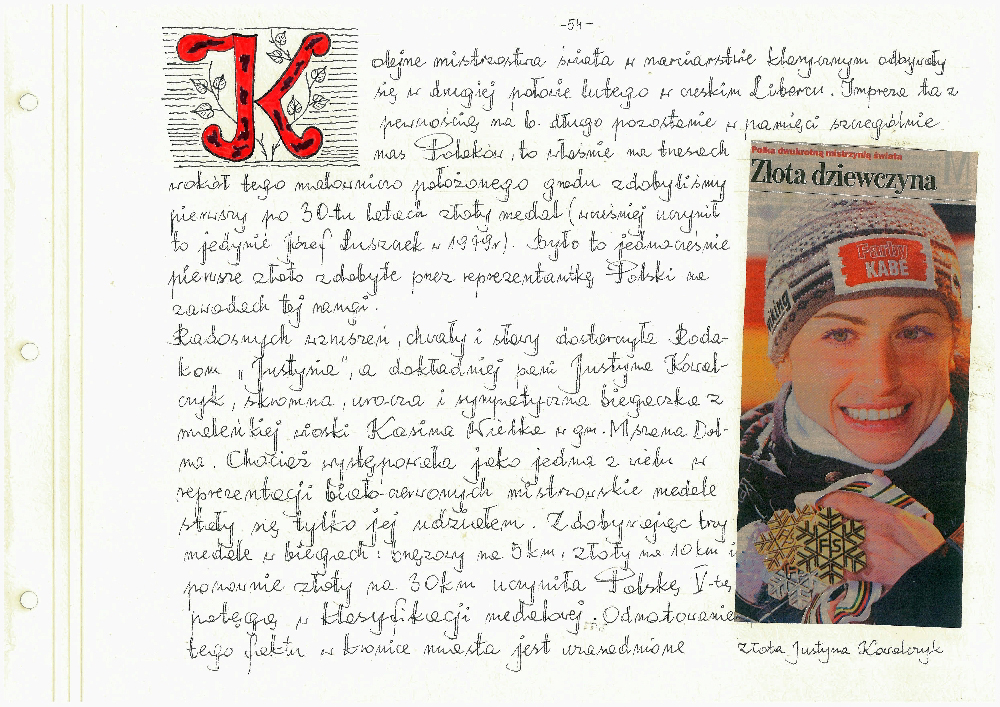 -54-
Kolejne mistrzostwa świata w narciarstwie klasycznym odbywały
się w drugiej połowie lutego w czeskim Libercu. Impreza ta z
pewnością na b. długo pozostanie w pamięci szczególnie
nas Polaków, to właśnie na trasach
wokół tego malowniczo położonego grodu zdobyliśmy
pierwszy po 30-tu latach złoty medal (wcześniej uczynił
to jedynie Józef Łuszczek w 1979r). Było to jednocześnie
pierwsze złoto zdobyte przez reprezentantkę Polski na
zawodach tej rangi.
Radosnych wzruszeń, chwały i sławy dostarczyła Roda-
kom "Justysia", a dokładniej pani Justyna Kowal-
czyk, skromna, urocza i sympatyczna biegaczka z
maleńkiej wioski Kasina Wielka w gm. Mszana Dol-
na. Chociaż występowała jako jedna z wielu w
reprezentacji biało-czerwonych mistrzowskie medale
stały się tylko jej udziałem. Zdobywając trzy
medale w biegach: brązowy na 5km, złoty na 10km i
ponownie złoty na 30km uczyniła Polskę V-tą
potęgą w klasyfikacji medalowej. Odnotowanie
tego faktu w kronice miasta jest uzasadnione
Polka dwukrotną mistrzynią świata
Złota dziewczyna
Farby
KABE
viking
FIS
Złota Justyna Kowalczyk